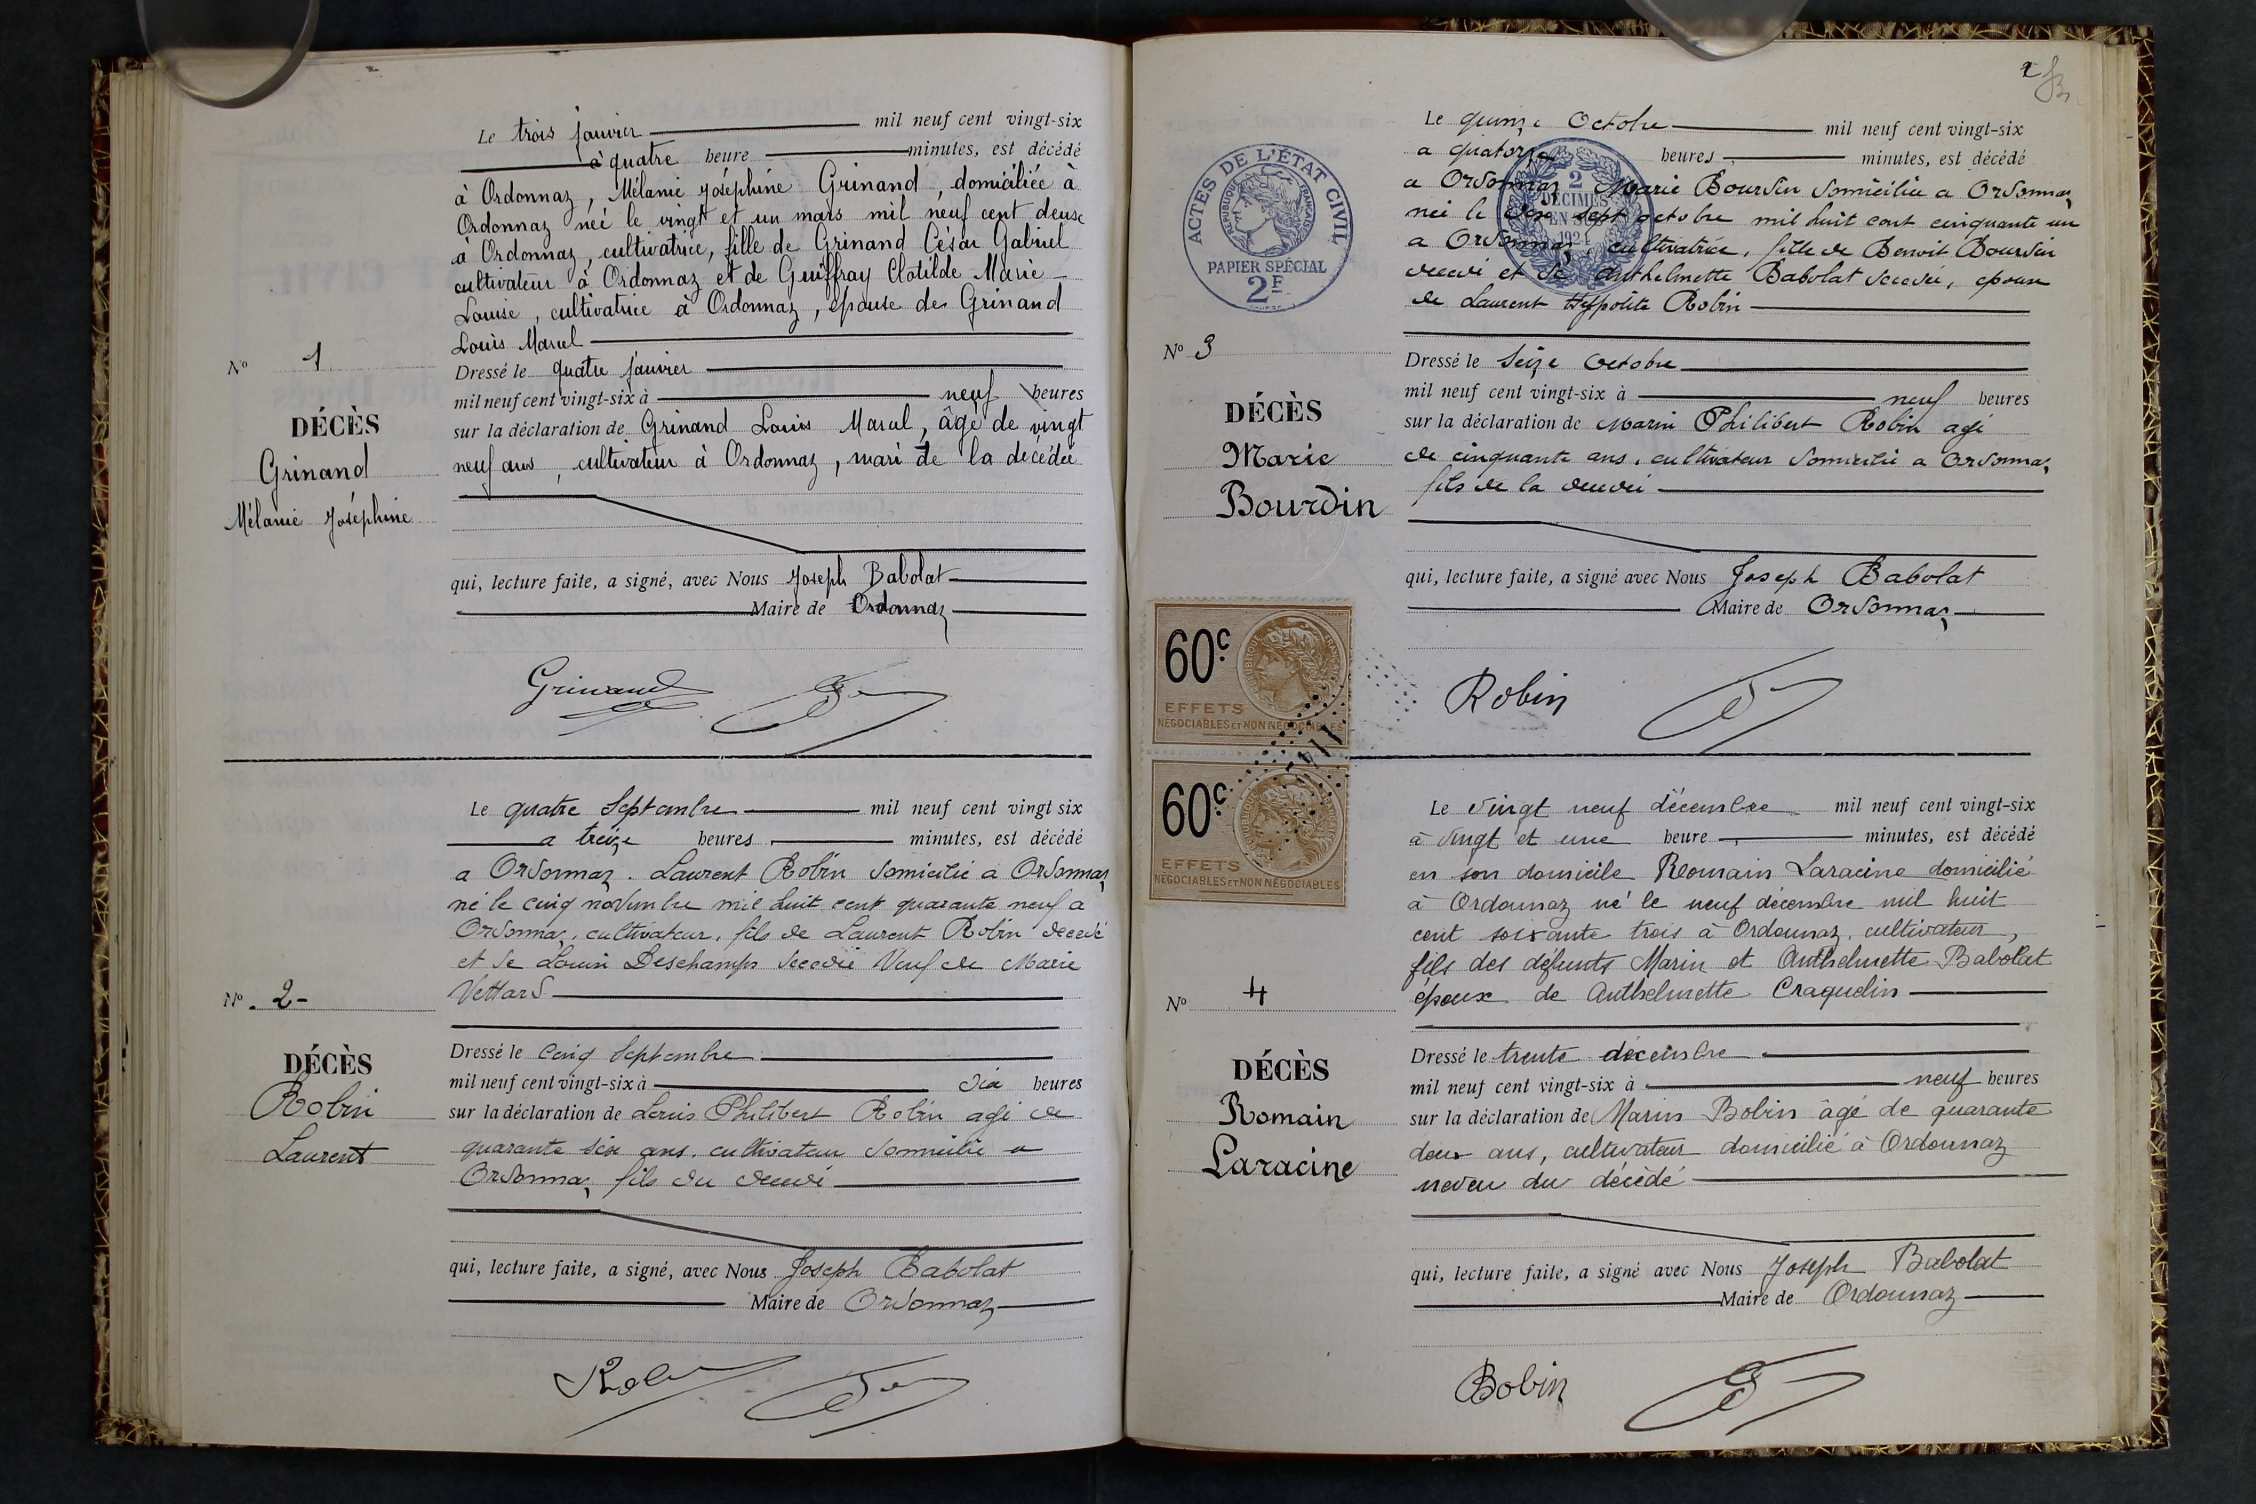 Le trois janvier mil neuf cent vingt-six
à quatre heure minutes, est décédé
à Ordonnaz, Mélanie Joséphine Grinand, domiciliée à
Ordonnaz neé le vingt et un mars mil neuf cent deux
à Ordonnaz, cultivatrice, fille de Grinand César Gabriel
cultivateur à Ordonnaz et de Guiffray Clotilde Marie
Louise, cultivatrice à Ordonnaz, épouse de Grinand
Louis Marcel
Nº 1
DÉCÈS
Grinand
Mélanie Joséphine
Dressé le quatre janvier
mil neuf cent vingt-six à neuf heures
sur la déclaration de Grinand Louis Marcel, âgé de vingt
neuf ans, cultivateur à Ordonnaz, mari de la décédée
qui, lecture faite, a signé, avec Nous Joseph Babolat
Maire de Ordonnaz
Grinand
Le quatre Septembre mil neuf cent vingt six
a treize heures minutes, est décédé
a Ordonnaz. Laurent Robin domicilié a Ordonnaz
né le cinq novembre mil huit cent quarante neuf a
Ordonnaz, cultivateur, fils de Laurent Robin decedé
et de Louise Deschamps decedée Veuf de Marie
Vettard
Nº 2-
DÉCÈS
Robin
Laurent
Dressé le cinq Septembre
mil neuf cent vingt-six à dix heures
sur la déclaration de Louis Philibert Robin agé de
quarante six ans. cultivateur domicilié a
Ordonnaz fils du decedé
qui, lecture faite, a signé, avec Nous Joseph Babolat
Maire de Ordonnaz
Robin
2
ACTES DE L'ÉTAT CIVIL
RÉPUBLIQUE FRANÇAISE
PAPIER SPÉCIAL
2F
2
DÉCIMES
EN
1924
Le quinze Octobre mil neuf cent vingt-six
a quatorze heures minutes, est décédé
a Ordonnaz Marie Bourdin domiciliée a Ordonnaz
née le dix sept octobre mil huit cent cinquante un
a Ordonnaz, cultivatrice, fille de Benoit Bourdin
decedé et de Anthelmette Babolat decedée, epouse
de Laurent Hyppolite Robin
Nº 3
DÉCÈS
Marie
Bourdin
Dressé le Seize Octobre
mil neuf cent vingt-six à neuf heures
sur la déclaration de Marin Philibert Robin agé
de cinquante ans, cultivateur domicilié a Ordonnaz
fils de la decedée
qui, lecture faite, a signé avec Nous Joseph Babolat
Maire de Ordonnaz
Robin
60c.
EFFETS
NÉGOCIABLES ET NON NÉGOCIABLES
60c.
EFFETS
NÉGOCIABLES ET NON NÉGOCIABLES
Le vingt neuf décembre mil neuf cent vingt-six
à vingt et une heure minutes, est décédé
en son domicile Romain Laracine domicilié
à Ordonnaz né le neuf décembre mil huit
cent soixante trois à Ordonnaz, cultivateur,
fils des défunts Marin et Anthelmette Babolat
époux de Anthelmette Craquelin
Nº 4
DÉCÈS
Romain
Laracine
Dressé le trente décembre
mil neuf cent vingt-six à neuf heures
sur la déclaration de Marius Bobin âgé de quarante
deux ans, cultivateur domicilié à Ordonnaz
neveu du décédé
qui, lecture faite, a signé avec Nous Joseph Babolat
Maire de Ordonnaz
Bobin